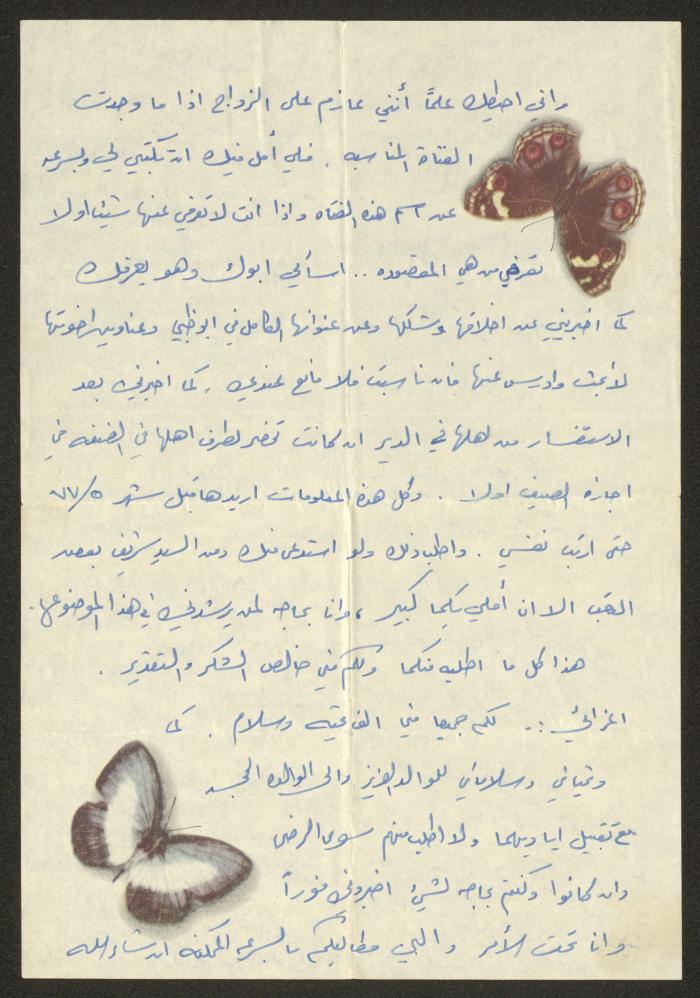 واني احيطك علماً أنني عازم على الزواج اذا ما وجدت
الفتاة المناسبه . فلي أمل فيك ان تكتبي لي وبسرعه
عن اسم هذه الفتاه واذا انت لا تعرفي عنها شيئا اولا
تعرفي من هي المقصوده .. اسألي ابوك وهو يعرفك
كما اخبريني عن اخلاقها وشكلها وعن عنوانها الكامل في ابوظبي وعناوين اخوتها
لأبحث وادرس عنها فان ناسبت فلا مانع عندي . كما اخبرني بعد
الاستفسار من اهلها في الدير ان كانت تحضر لطرف اهلها في الضفه في
اجازة الصيف اولا . وكل هذه المعلومات اريدها قبل شهر ٧٧/٥
حتى ارتب نفسي . واطلب ذلك ولو استدعى منك ومن السيد شريف بعض
التعب الا ان أملي بكما كبير ، وانا بحاجه لمن يرشدني في هذا الموضوع .
هذا كل ما اطلبه منكما ولكم مني خالص الشكر والتقدير .
اعزائي :.. لكم جميعا مني الف تحيه وسلام . كما
وتحياتي وسلاماتي للوالد العزيز والى الوالده
مع تقبيل اياديهما ولا اطلب منهم سوى الرضى
وان كانوا وكنتم بحاجه لشيء اخبروني فوراً
وانا تحت الأمر والبي مطالبكم بالسرعه الممكنه ان شاء الله